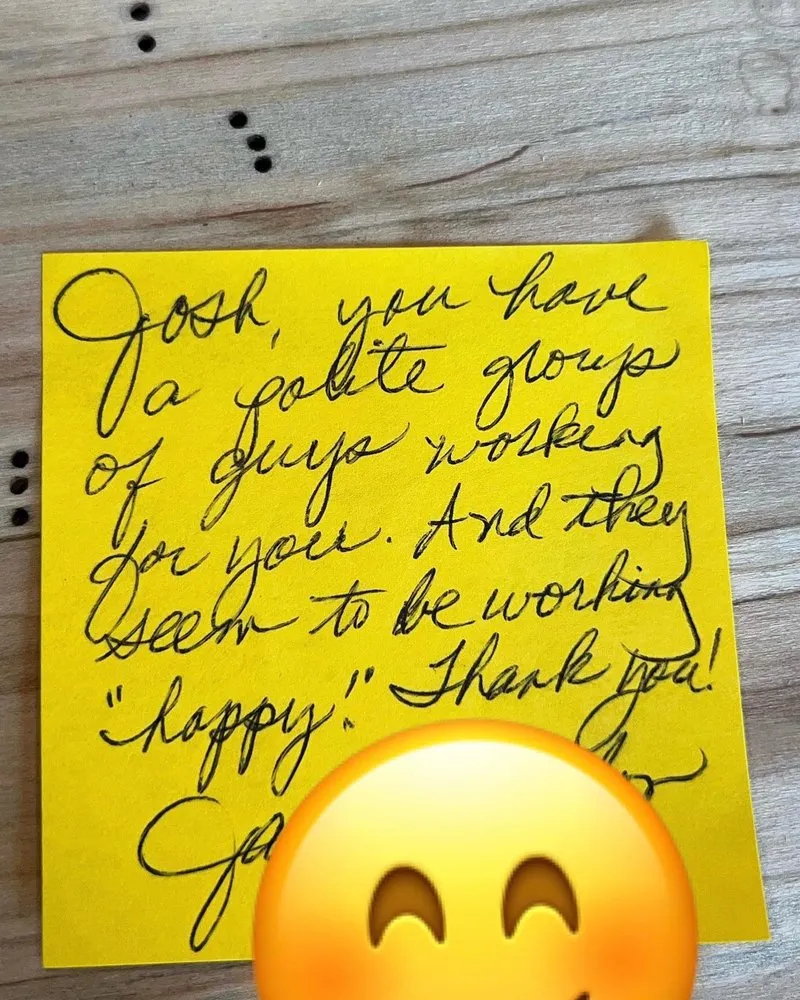 Josh, you have
a polite group
of guys working
for you. And they
seem to be working
"happy!" Thank you!